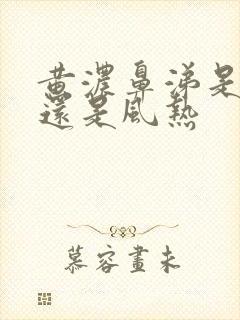 黄濃鼻涕是
還是風熱
慕容畫未